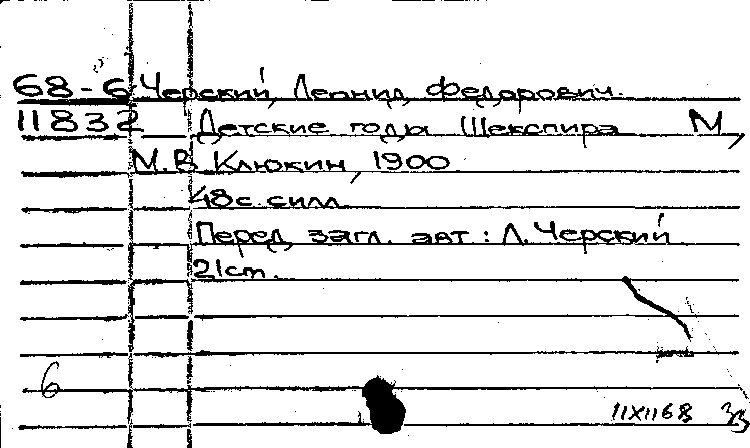 68-6 Черский, Леонид Федорович.
11832 Детские годы Шекспира М,
М.В. Клюкин, 1900
48с. силл.
Перед загл. авт: Л. Черский.
21cm.
6
11X1168